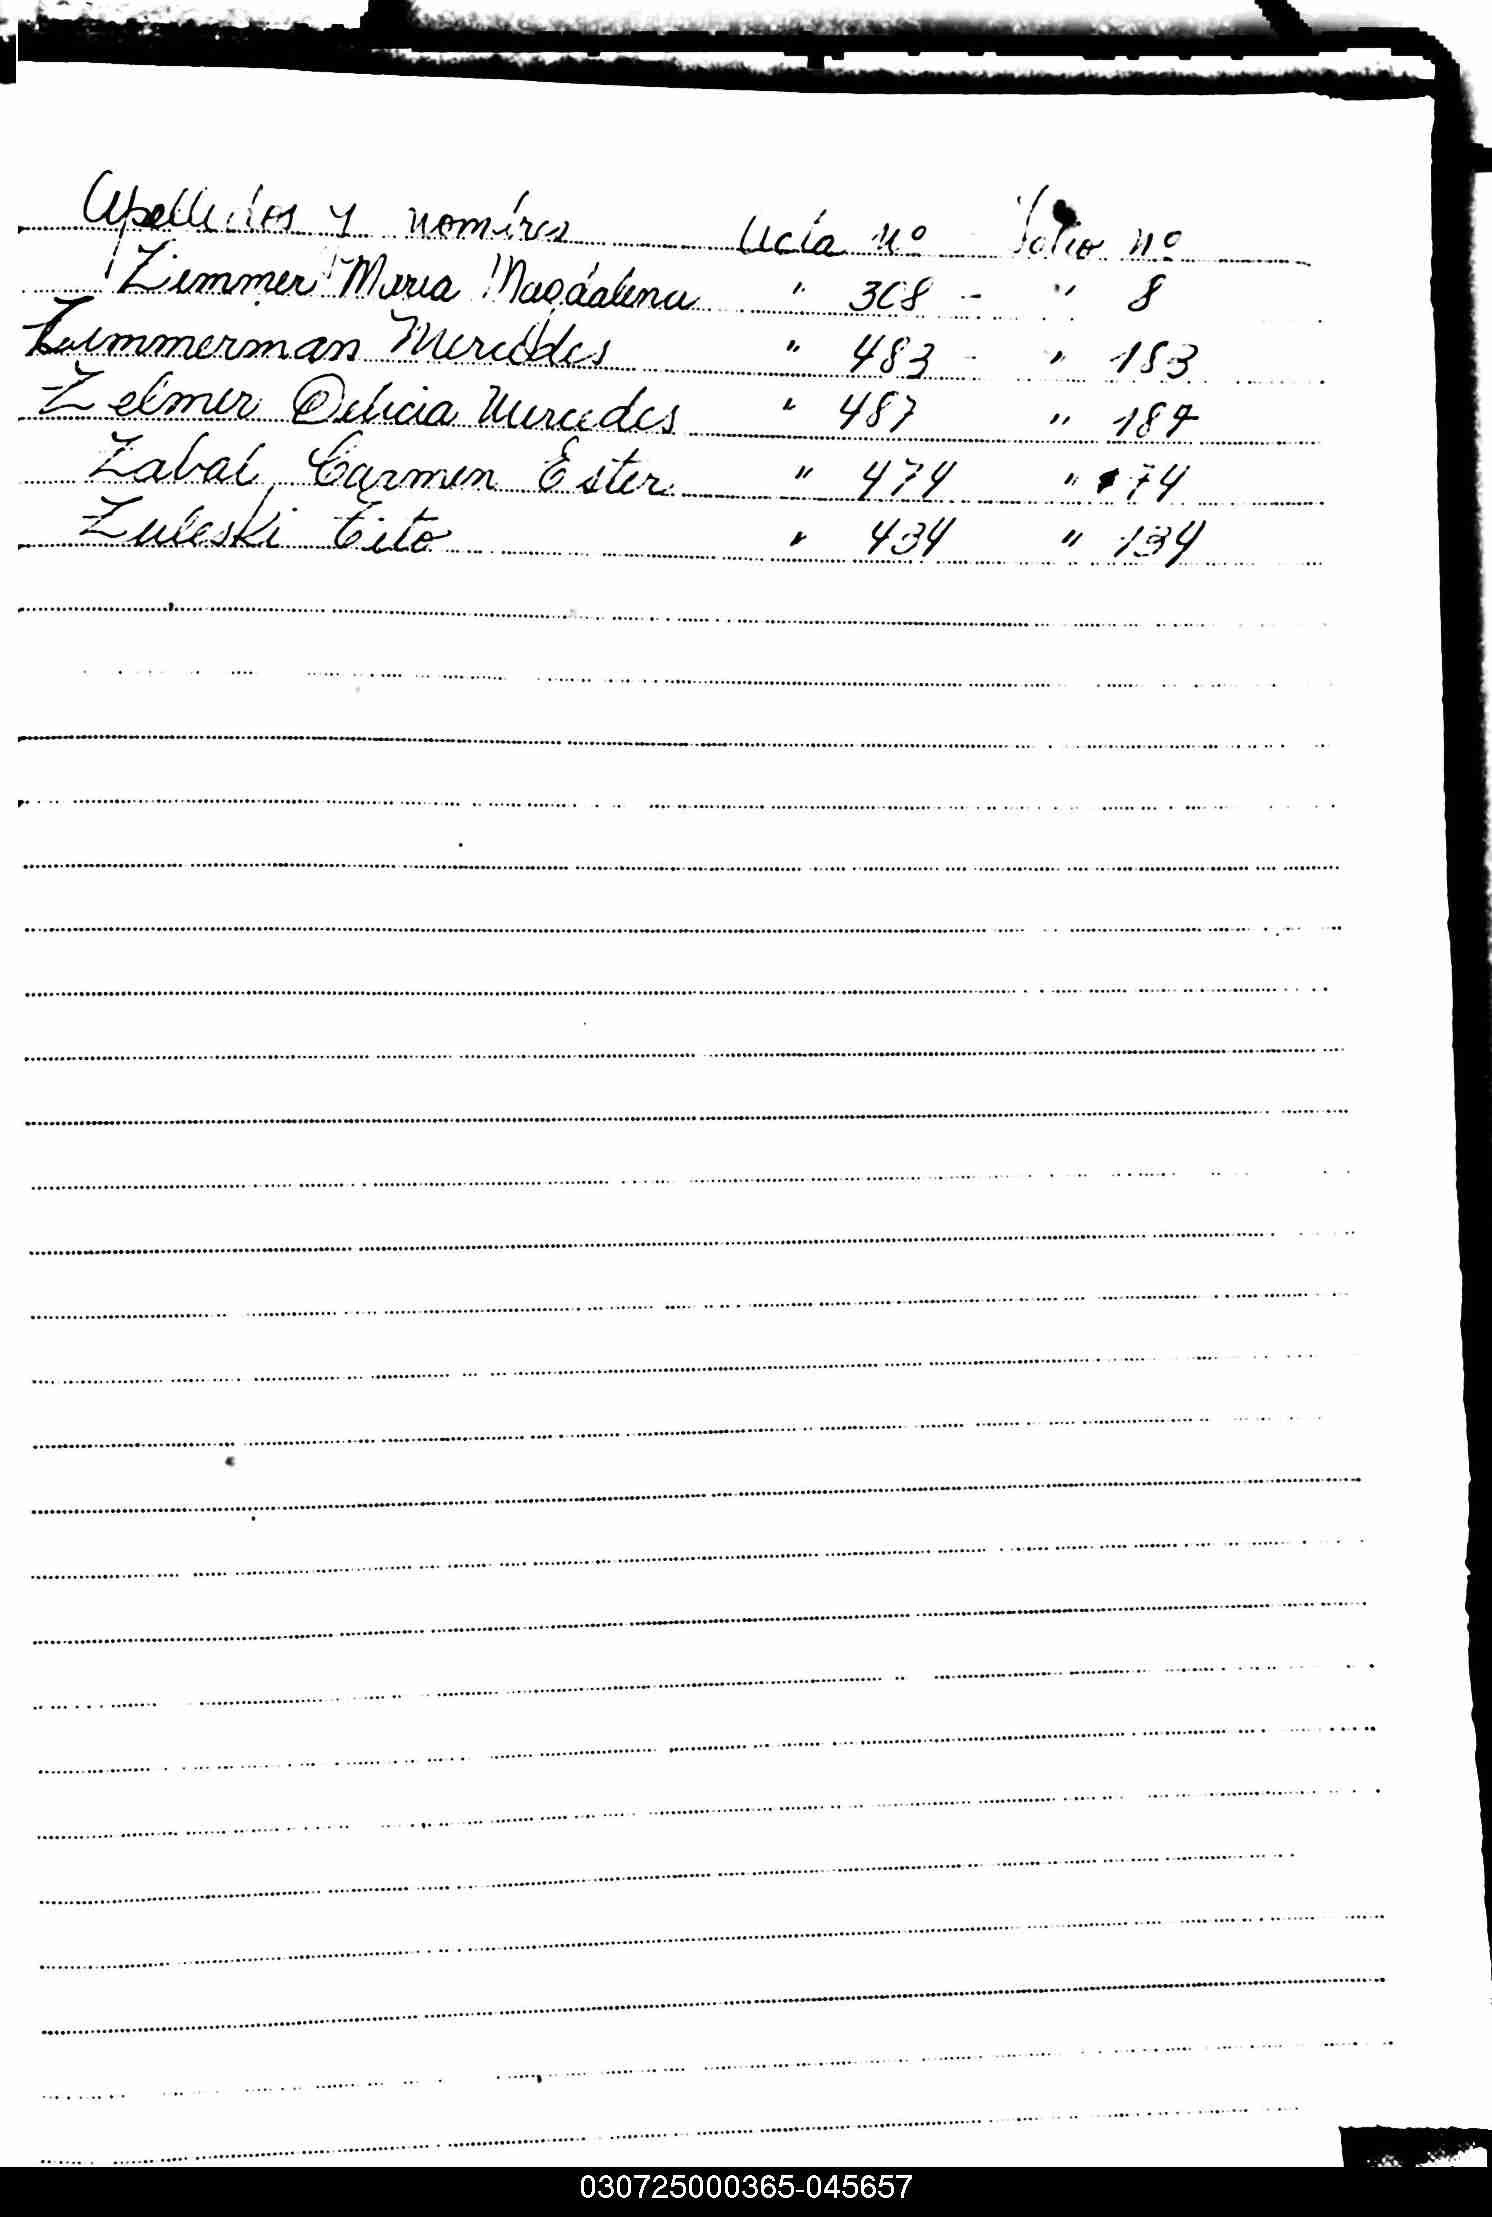 Apellidos y nombres Acta nº Folio nº
Zimmer Maria Magdalena " 308 - " 8
Zimmerman Mercedes " 483 - " 183
Zelmer Delicia Mercedes " 487 " 187
Zabal, Carmen Ester " 474 " 174
Zuleski Tito " 434 " 134
030725000365-045657